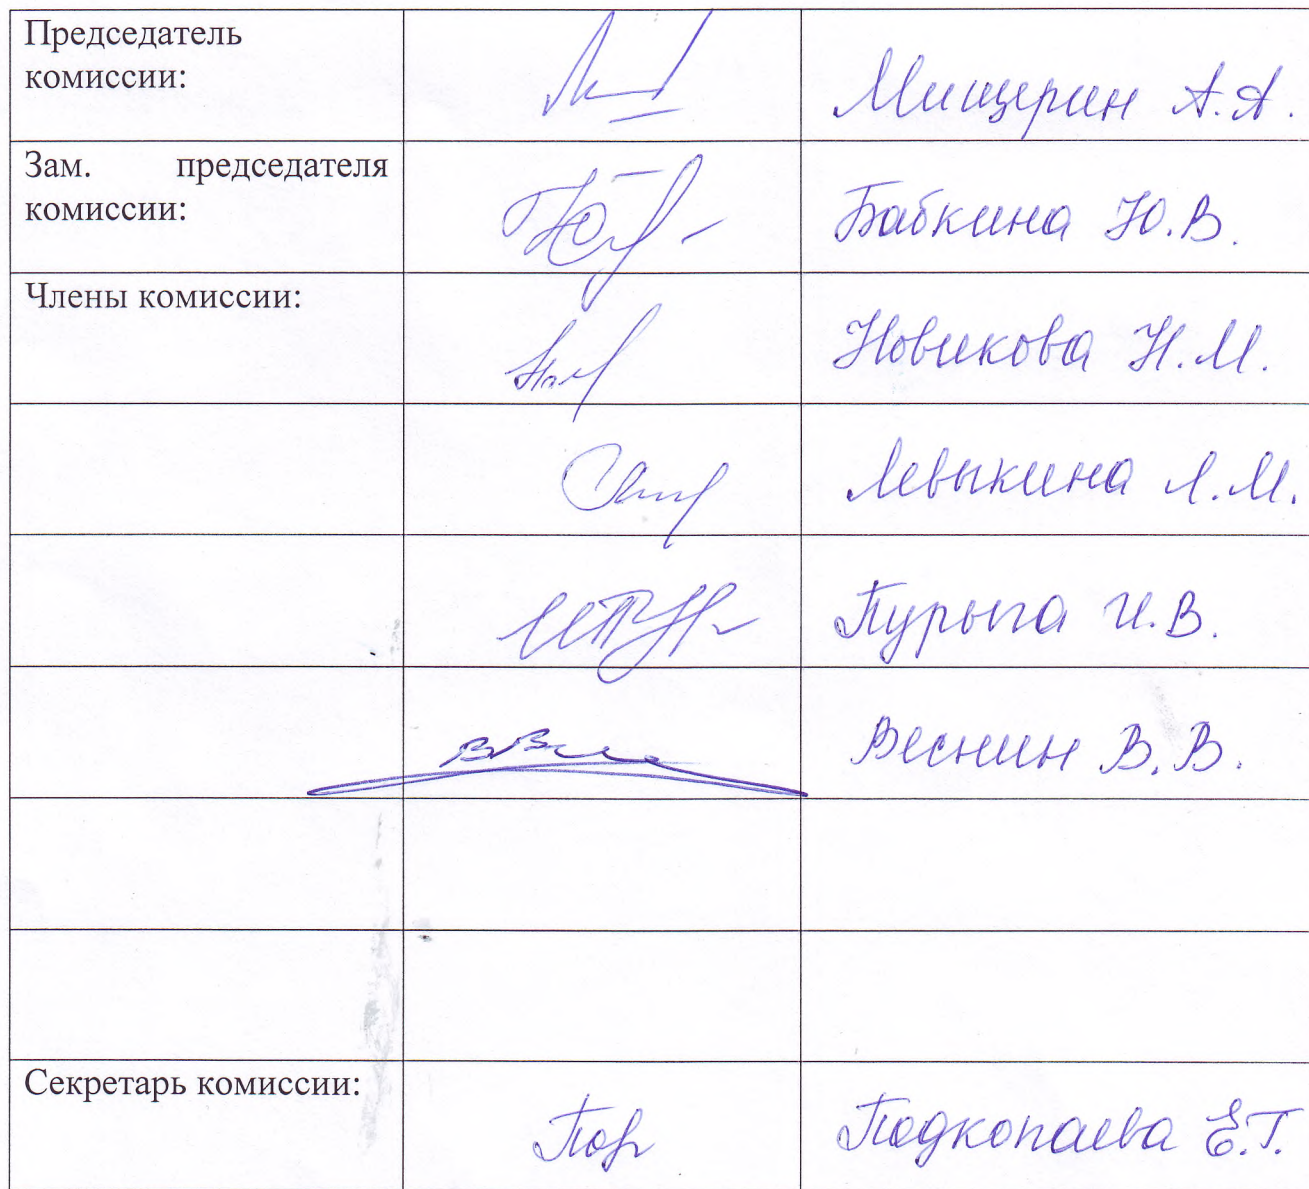 Председатель
комиссии:
Мищерин А.А.
Зам. председателя
комиссии:
Бабкина Ю.В.
Члены комиссии:
Новикова Н.М.
Левыкина Л.М.
Пурыга И.В.
Веснин В.В.
Секретарь комиссии:
Подкопаева Е.Г.